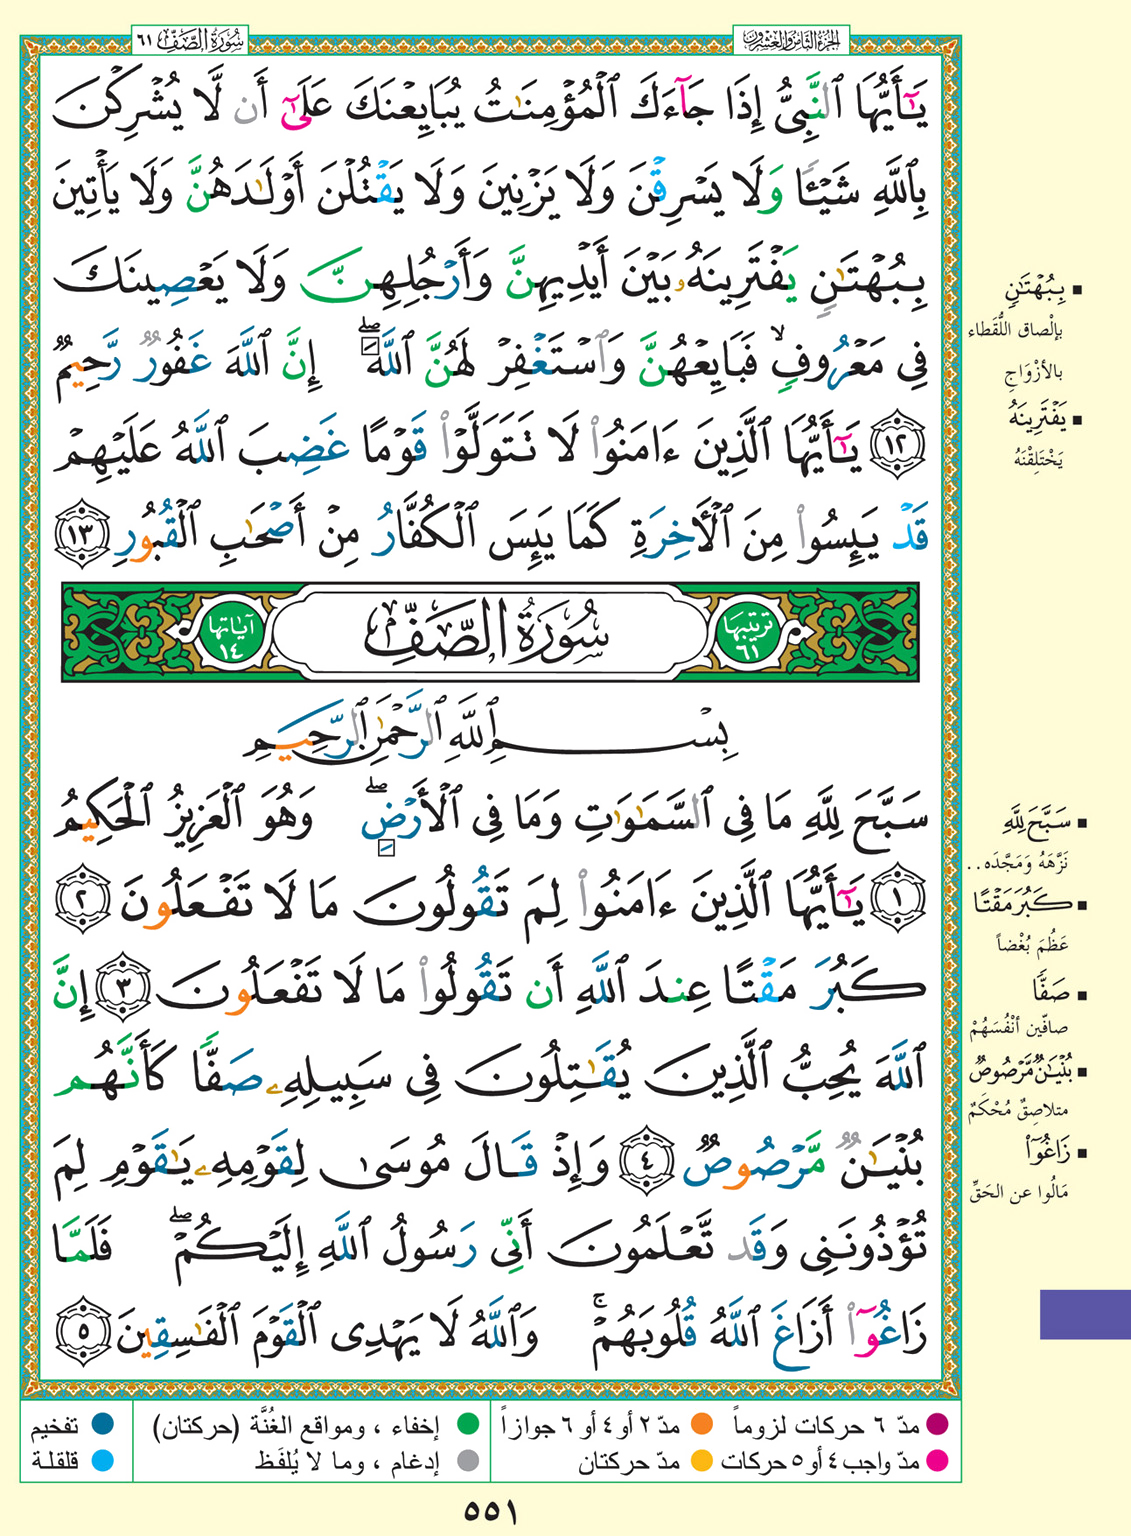 الجزء الثامن والعشرون
سُورَةُ الصَّفِّ ٦١
يَٰٓأَيُّهَا ٱلنَّبِىُّ إِذَا جَآءَكَ ٱلْمُؤْمِنَٰتُ يُبَايِعْنَكَ عَلَىٰٓ أَن لَّا يُشْرِكْنَ
بِٱللَّهِ شَيْـًٔا وَلَا يَسْرِقْنَ وَلَا يَزْنِينَ وَلَا يَقْتُلْنَ أَوْلَٰدَهُنَّ وَلَا يَأْتِينَ
بِبُهْتَٰنٍ يَفْتَرِينَهُۥ بَيْنَ أَيْدِيهِنَّ وَأَرْجُلِهِنَّ وَلَا يَعْصِينَكَ
فِى مَعْرُوفٍ ۙ فَبَايِعْهُنَّ وَٱسْتَغْفِرْ لَهُنَّ ٱللَّهَ ۖ إِنَّ ٱللَّهَ غَفُورٌ رَّحِيمٌ
١٢ يَٰٓأَيُّهَا ٱلَّذِينَ ءَامَنُوا۟ لَا تَتَوَلَّوْا۟ قَوْمًا غَضِبَ ٱللَّهُ عَلَيْهِمْ
قَدْ يَئِسُوا۟ مِنَ ٱلْـَٔاخِرَةِ كَمَا يَئِسَ ٱلْكُفَّارُ مِنْ أَصْحَٰبِ ٱلْقُبُورِ ١٣
ترتيبها ٦١ سُورَةُ الصَّفِّ آياتها ١٤
بِسْمِ ٱللَّهِ ٱلرَّحْمَٰنِ ٱلرَّحِيمِ
سَبَّحَ لِلَّهِ مَا فِى ٱلسَّمَٰوَٰتِ وَمَا فِى ٱلْأَرْضِ ۖ وَهُوَ ٱلْعَزِيزُ ٱلْحَكِيمُ
١ يَٰٓأَيُّهَا ٱلَّذِينَ ءَامَنُوا۟ لِمَ تَقُولُونَ مَا لَا تَفْعَلُونَ ٢
كَبُرَ مَقْتًا عِندَ ٱللَّهِ أَن تَقُولُوا۟ مَا لَا تَفْعَلُونَ ٣ إِنَّ
ٱللَّهَ يُحِبُّ ٱلَّذِينَ يُقَٰتِلُونَ فِى سَبِيلِهِۦ صَفًّا كَأَنَّهُم
بُنْيَٰنٌ مَّرْصُوصٌ ٤ وَإِذْ قَالَ مُوسَىٰ لِقَوْمِهِۦ يَٰقَوْمِ لِمَ
تُؤْذُونَنِى وَقَد تَّعْلَمُونَ أَنِّى رَسُولُ ٱللَّهِ إِلَيْكُمْ ۖ فَلَمَّا
زَاغُوٓا۟ أَزَاغَ ٱللَّهُ قُلُوبَهُمْ ۚ وَٱللَّهُ لَا يَهْدِى ٱلْقَوْمَ ٱلْفَٰسِقِينَ ٥
بِبُهْتَٰنٍ
بإلْصاق اللُّقَطاء
بالأزْوَاجِ
يَفْتَرِينَهُ
يَخْتَلِقْنَهُ
سَبَّحَ لِلَّهِ
نَزَّهَهُ وَمَجَّدَه..
كَبُرَ مَقْتًا
عَظُمَ بُغْضاً
صَفًّا
صافّين أنْفُسَهُمْ
بُنْيَٰنٌ مَّرْصُوصٌ
متلاصِقٌ مُحْكَمٌ
زَاغُوٓا۟
مَالُوا عن الحَقِّ
مدّ ٦ حركات لزوماً
مدّ ٢ أو ٤ أو ٦ جوازاً
إخفاء ، ومواقع الغُنَّة (حركتان)
تفخيم
مدّ واجب ٤ أو ٥ حركات
مدّ حركتان
إدغام ، وما لا يُلفَظ
قلقلة
٥٥١